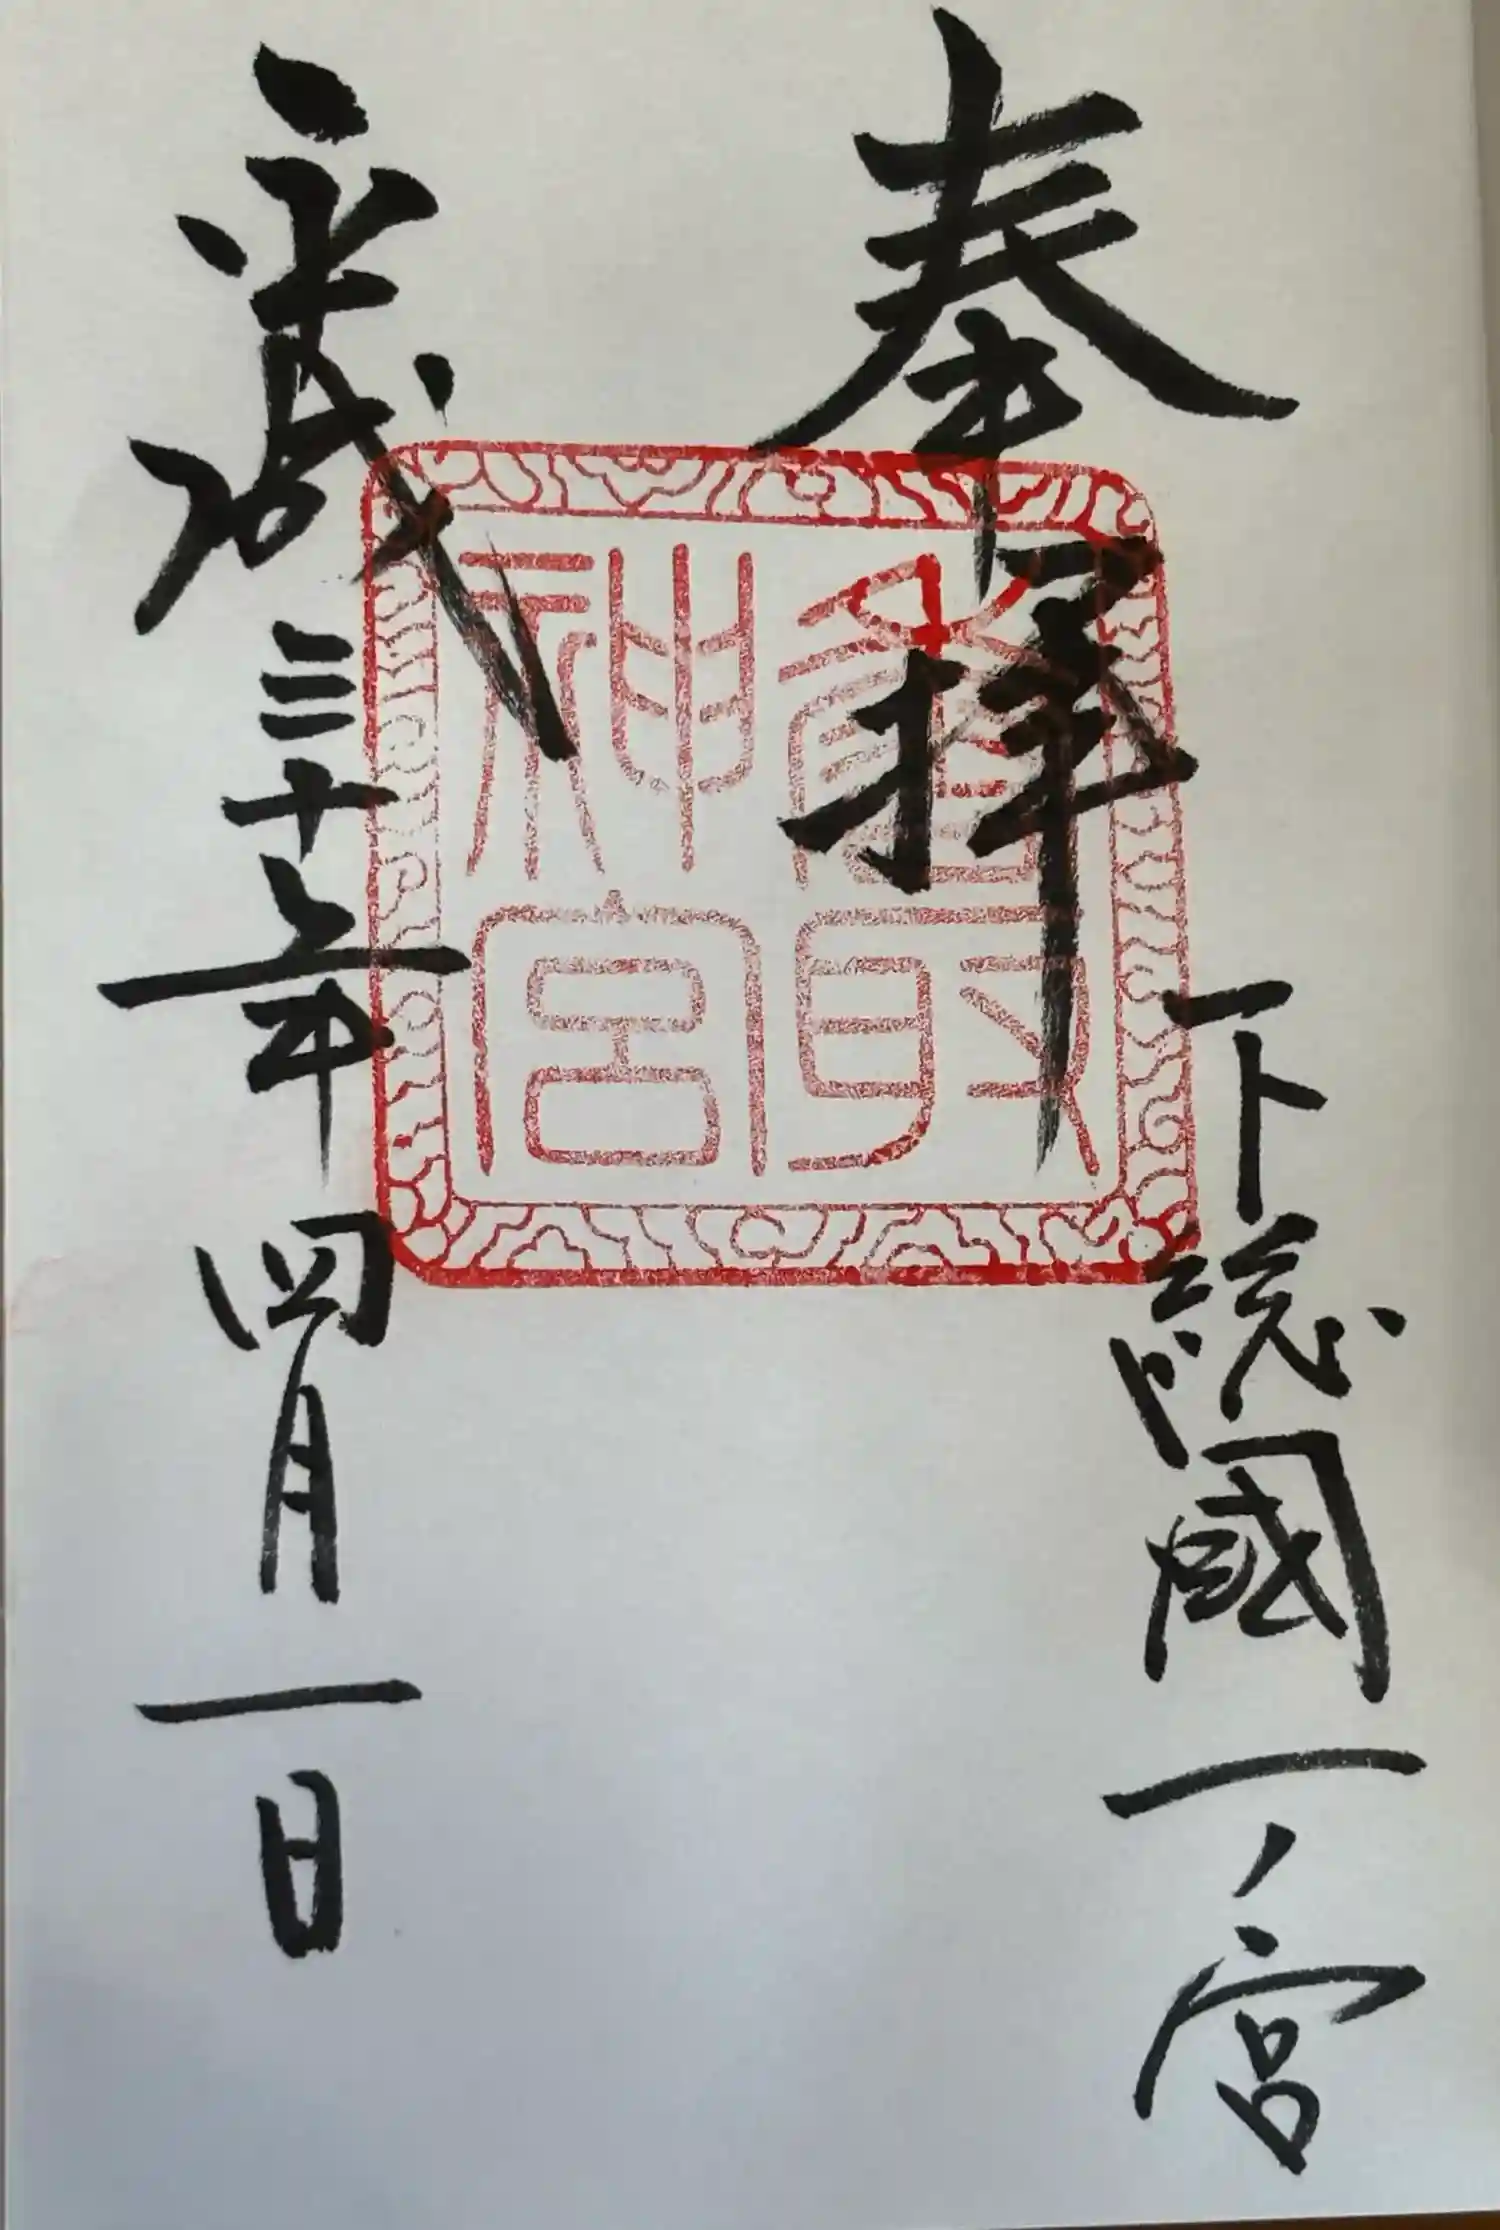 奉拝
下総國一ノ宮
香取
神宮
平成三十年四月一日